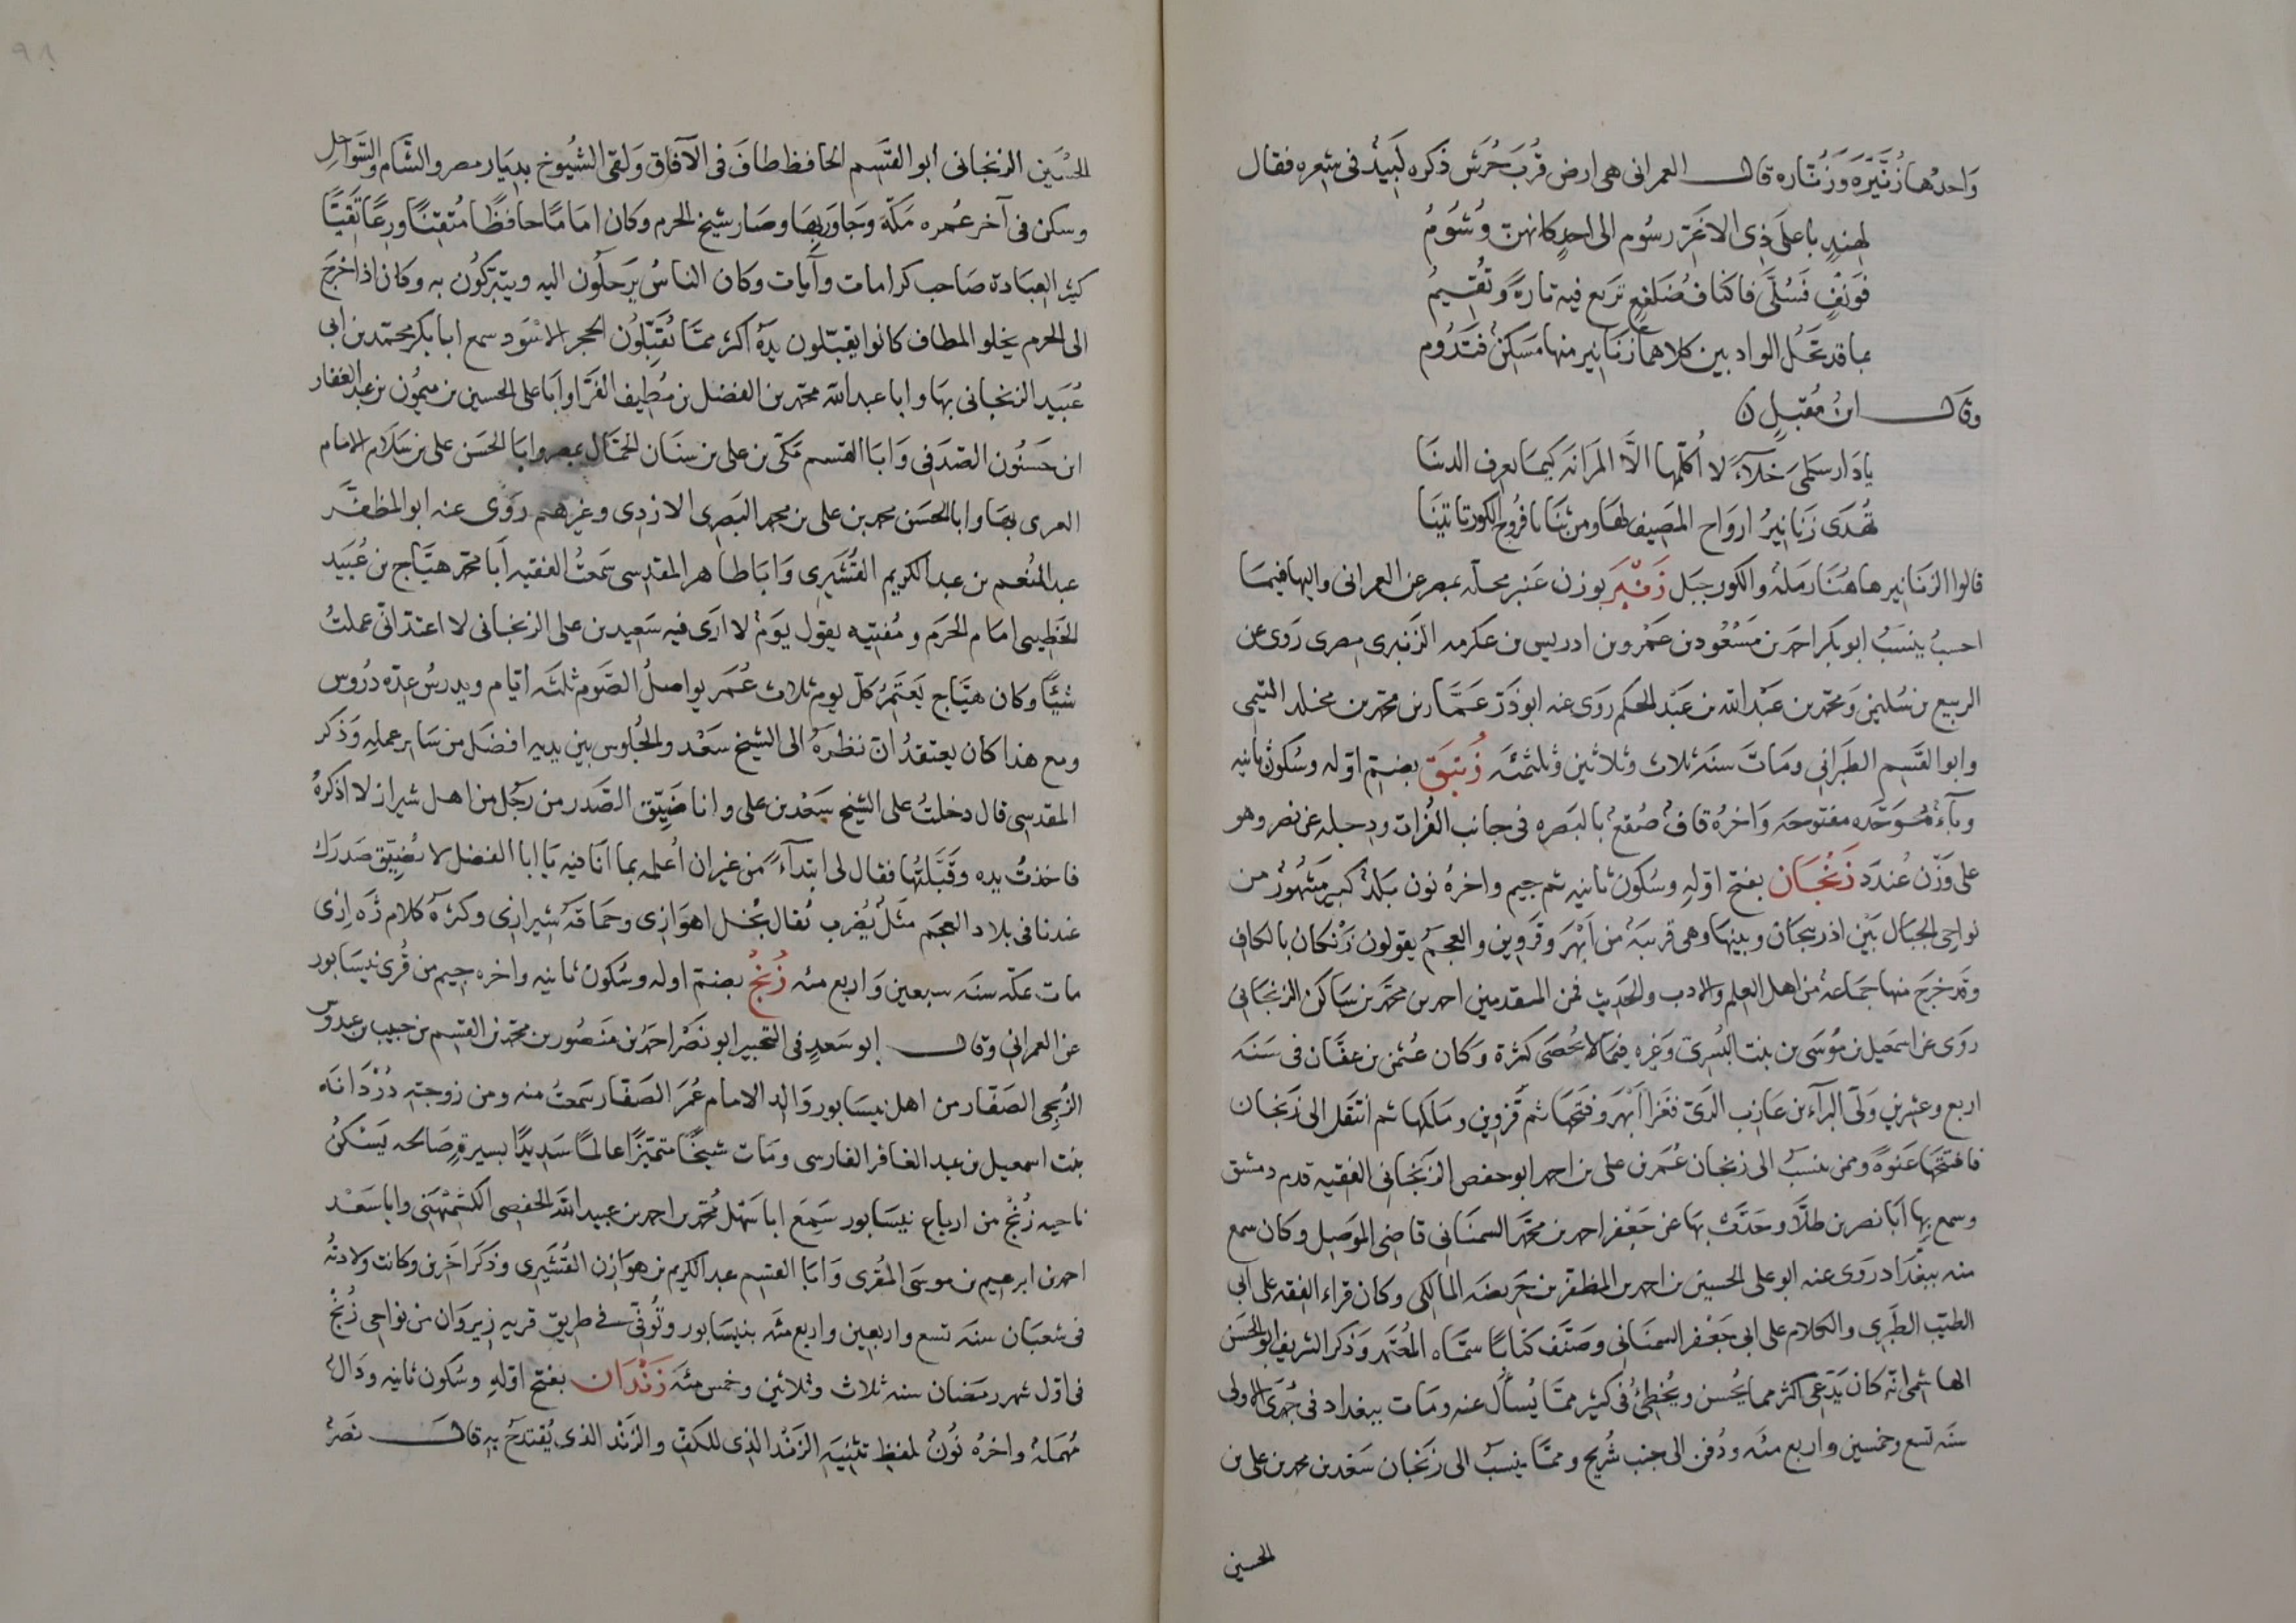 وَاحدُها زُنَّيْرَه وَزُنّاره قال العمرانى هى ارض قُربَ جُرَش ذكره لَبَيدٌ فى شعره فقال
لهندٍ باعلَى ذِى الاغَرّ رسُوم الى احدٍ كانهنّ وُشُومُ
فوَقفٍ فَسُلَّى فاكناف ضَلفعٍ تربع فيه تارةً وتُقيمُ
بما قد تحُلّ الواديين كلاهما زنانير منها مَسَكنٌ فتَدُوم
وقال ابنُ مُقبلٍ
يا دَار سَلمىَ خَلآءً لا اُكلّمها الاَّ المرَانهَ كيما يعرف الدينَا
تُهدَى زَنانيرُ ارواح المَصِيف لهَا ومن ثنَايا فروُج الكور تاتينَا
قالوا الزنَانير هاهُنَا رَملهٌ والكور جَبَل زَنْبَر بوزن عَنبر محلّه بمصر عن العمرانى واليها فيما
احسبُ ينسَبُ ابو بكر احمد بن مَسْعُود بن عَمْرو بن ادريس بن عكرمه الزنبرى مصرى رَوى عن
الربيع بن سُليمٰن وَمحمّد بن عَبْد الله بن عَبْد الحكم رَوى عنه ابو ذَرّ عَمَّار بن محمّد بن مخلد التميمى
وابو القَسِم الطبَرانى ومَاتَ سنه ثلاث وثلاثين وثلثمئه زُنبَق بضمّ اوّله وسُكون ثانيه
وبآءٌ مُوَحّده مفتوحه وَاخرُه قافٌ صُقعٌ بالبَصره فى جانب الفُرات ودجله عن نصر وهو
على وَزْن عُندَد زَنْجَان بفتح اوّلهِ وسُكون ثانيه ثم جيم واخرهُ نون بَلدٌ كبير مَشهُورٌ من
نواحى الجبَال بَيْن اذربيجَان وبينها وهى قريبَهٌ من اَبْهَر وقزوين والعجمُ يقولون زنكان بالكاف
وقد خرجَ منها جمَاعهٌ من اهل العِلم والادب والحَديث فمن المتقدمين احمد بن محمّد بن سَاكن الزنجَانى
روَى عن اسمَعيل بن موُسَى بن بنت السُدىّ وَغيره فيما لا يُحصَى كثرة وَكان عُثمٰن بن عفَّان فى سَنَه
اربع وعشرين وَلَّى البرآء بن عَازب الرىّ فغَزا اَبْهَر وفتَحها ثم قزوين وملكها ثم انتقل الى زنجان
فافتتحَها عَنوةً وممن ينسَبُ الى زنجان عُمَر بن على بن احمد ابو حفص الزنجانى الفقيه قدم دمشق
وسمع بها اَبَا نصر بن طلّاب وحَدَّثَ بهَا عن ابى جَعفر احمد بن محمّد السمنَانى قاضى الموَصِل وكان سمع
منه ببغدَاد رَوى عنه ابو على الحسين بن احمد بن المظفّر بن جَريضَه المالكى وكان قراء الفِقه على ابى
الطيّب الطبَرى والكلام على ابى جَعْفر السمنَانى وصَنَّف كتَابًا سمَّاه المُعتَمد وَذكر الشريف ابو الحسَن
الهاشمى انّه كان يَدَّعى اكثر مما يُحسن ويُخطئُ فى كثير ممّا يُسأل عنه ومَات ببغداد فى جُمَدَى الاولى
سنَه تسع وخمسين واربع مئه ودُفن الى جنب ابن شُريح وممَّا ينسبُ الى زنجان سَعْد بن محمد بن على بن
الحسين
الحُسَين الزنجانى ابو القَسِم الحافظ طافَ فى الآفاق وَلقى الشيُوخ بديَار مصر والشّام والسَّوَاحل
وسكن فى آخر عُمره مَكّهَ وجَاوَر بهَا وصَار شيخ الحرم وكان امَامًا حافظًا مُتقنًا ورعًا تَقيًّا
كثير العبَادة صَاحب كرامات وآيات وكان الناسُ يَرحلُون اليه ويتبرّكُون به وكان اذا خرجَ
الى الحرم يخلو المطاف كانوا يقبّلون يدَهُ اكثر ممَّا يُقَبّلوُن الحجر الاسْوَد سمع ابا بكر محمّد بن ابى
عُبَيد الزنجانى بهَا وابا عبد الله محمّد بن الفضل بن نُظيف الفَرَّا واَبا على الحسين بن ميمُون بن عبد الغفار
ابن حَسنُون الصدَفى وَابَا القسم مَكّى بن على بن سنَان الحمَّال بمصر وابا الحسَن على بن سَلام الامام
الغرى بهَا وابا الحسَن محمد بن على بن محمد البَصرى الازدى وغيرهم روَى عنه ابو المظفَّر
عبد المُنعم بن عبد الكريم القُشَيرِى وَابَا طاهر المقدسى سَمعتُ الفقيه اَبَا محمّد هيَّاج بن عُبَيد
الحَطِيبى امَام الحَرم ومُفتيه يقول يَومٌ لا ارَى فيه سَعيد بن على الزنجانى لا اعتدّ انّى عملتُ
شيئًا وكان هيَّاج يَعتَمرُ كل يوم ثلاث عُمَر يواصلُ الصَّوم ثلثَه اَيّام ويدرسُ عِدّه دُروس
ومع هذا كان يعتقدُ انّ نظرَهُ الى الشيخ سَعْد والجُلوس بين يديه افضَل من سَاير عمله وَذكر
المقدسى قال دخلتُ على الشيخ سَعْد بن على وانا ضَيّق الصَّدر من رَجُل من اهل شيراز لا اذكرهُ
فاخذتُ يده وقبَّلتُها فقال لى ابتدآءً من غير ان اُعلمه بما انَا فيه يَا ابا الفضل لا تُضيّق صَدرَك
عندنا فى بلاد العجَم مَثَلٌ يُضرب يُقال بُخل اهوَازى وحَمَاقهَ شيرازى وكثرهَ كلام رَازى
مات بمكّه سنَه سبعين وَاربع مئه زُنْجُ بضمّ اوله وسُكون ثانيه واخره جيم من قُرى نيسَابور
عن العمرانى وقال ابو سَعدٍ فى التحبير ابو نَصْر احمَد بن مَنصُور بن محمّد بن القسِم بن حبيب بن عبدوس
الزنجى الصَفّار من اهل نيسَابور وَالد الامام عُمَرَ الصَفّار سَمعتُ منه ومن زوجتهِ دُرْدَانَه
بنت اسمعيل بن عبد الغافر الفارسى ومَات شيخًا متميّزًا عالمًا سَديدًا بسيرةٍ صَالحه يَسْكنُ
ناحيه زُنْج من ارباع نيسَابور سَمِعَ اباَ سَهْل مُحمّد بن احمد بن عبيد الله الحَفصى الكشمْهَنى وابا سَعْد
احمد بن ابرهيم بن موسَى المُقرى وَابَا القسِم عبد الكريم بن هوَازن القُشَيرى وذكرَ اخَرين وكانت ولادتُه
فى شعبَان سنه تسع واربعين واربع مئه بنيسَابور وتُوفّى فى طريق قريه زيروَان من نواحى زُنْج
فى اوّل شهر رمضَان سنه ثلاث وثلاثين وخمس مئه زَنْدَان بفتح اوّلهِ وسُكون ثانيه ودَالٌ
مُهمَلهٌ واخرُه نُونٌ بلفظ تثنيَهِ الزَنْد الذى للكفّ والزَنْد الذى يُقتدَحُ بهِ قال نصَر